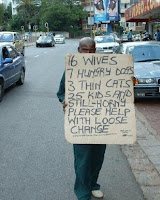 16 WIVES
7 HUNGRY DOGS
3 THIN CATS
25 KIDS AND
STILL-HORNY
PLEASE HELP
WITH LOOSE
CHANGE